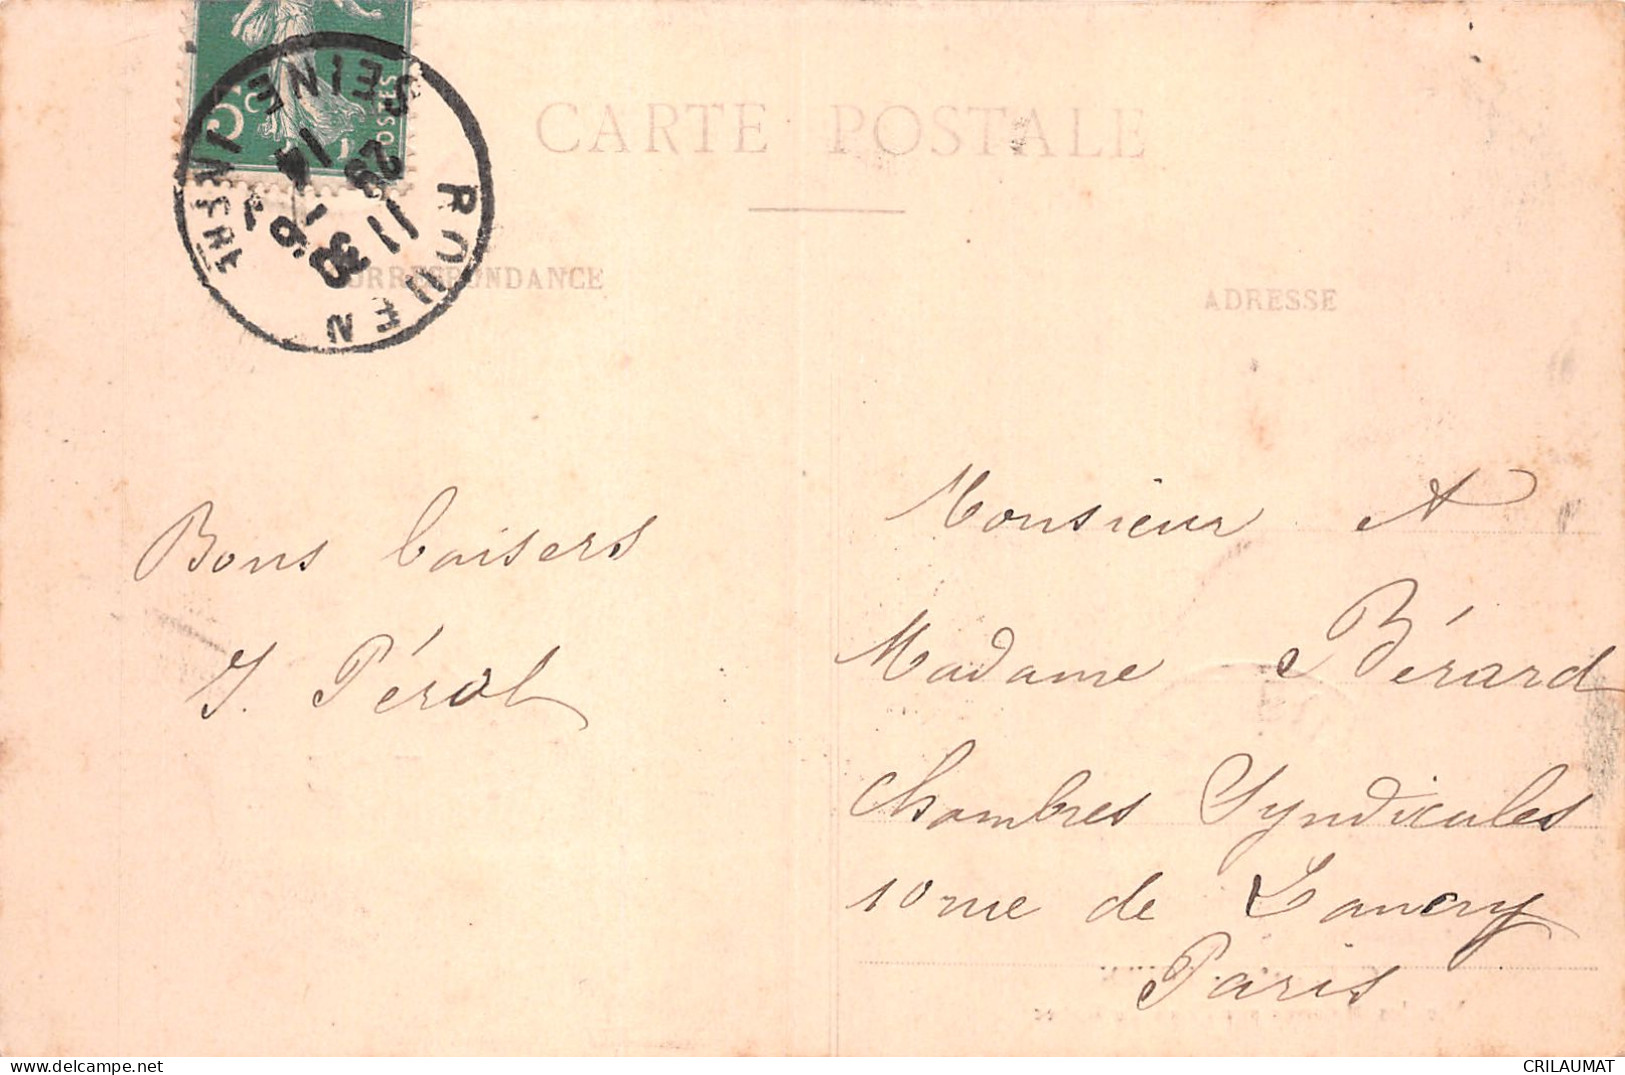 5c
POSTES
ROUEN
SEINE INFRE
11 30
29 - 6
14
CARTE POSTALE
CORRESPONDANCE
ADRESSE
Bons baisers
J. Pérol
Monsieur et
Madame Bérard
Chambres Syndicales
10 rue de Lancry
Paris
CRILAUMAT